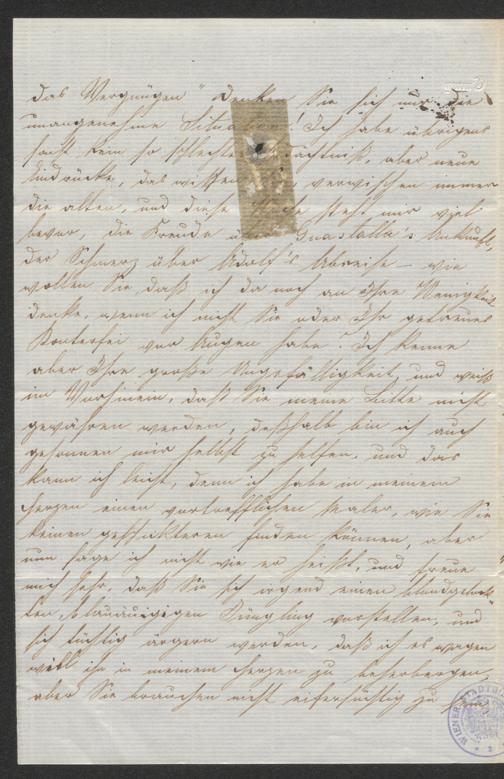 das Vergnügen" Denken Sie sich nur die
unangenehme Situation! Ich habe übrigens
sonst kein so schlechtes Gedächtniß, aber neue
Eindrücke, das wissen verwischen immer
die alten, und diese steht mir viel
bevor, die Freude über Guastalla's Ankunft,
der Schmerz über Adolf's Abreise – wie
wollen Sie daß ich da noch an Ihre Wenigkeit
denke, wenn ich nicht Sie oder Ihr getreues
Konterfei vor Augen habe? Ich kenne
aber Ihre große Ungefälligkeit und weiß
im Vorhinein, daß Sie meine Bitte nicht
gewähren werden, deßhalb bin ich auch
gesonnen mir selbst zu helfen, und das
kann ich leicht, denn ich habe in meinem
Herzen einen vortrefflichen Maler, wie Sie
keinen geschickteren finden können, aber
nun sage ich nicht wie er heißt, und freue
mich sehr, daß Sie sich irgend einen blondgelock-
ten, blauäugigen Jüngling vorstellen, und
sich tüchtig ärgern werden, daß ich es wagen
will ihn in meinem Herzen zu beherbergen,
aber Sie brauchen nicht eifersüchtig zu sein
WIENER STADTBI